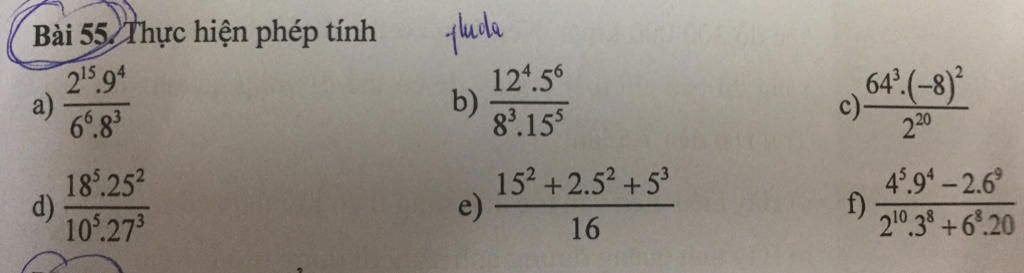 Bài 55. Thực hiện phép tính
a) \frac{2^{15}.9^4}{6^6.8^3} b) \frac{12^4.5^6}{8^3.15^5} c) \frac{64^3.(-8)^2}{2^{20}}
d) \frac{18^5.25^2}{10^5.27^3} e) \frac{15^2 + 2.5^2 + 5^3}{16} f) \frac{4^5.9^4 - 2.6^9}{2^{10}.3^8 + 6^8.20}